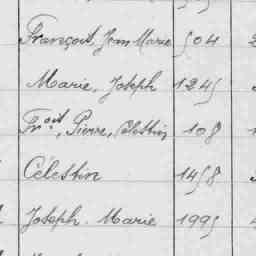 François, Jean Marie 504
Marie, Joseph 1245
Fçois, Pierre, Célestin 108
Célestin 1458
Joseph. Marie 1995